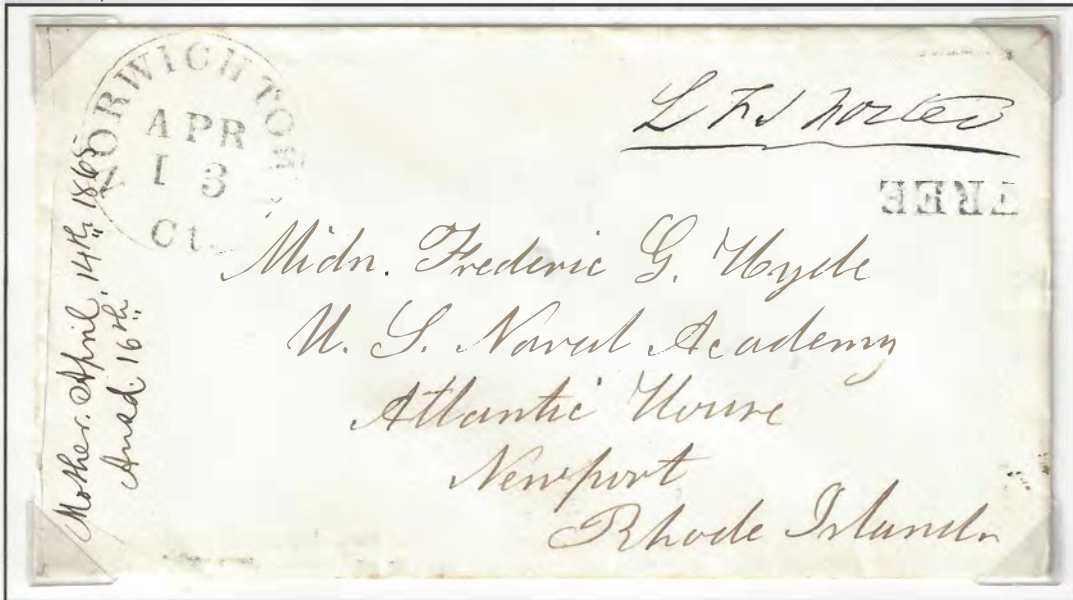 NORWICH TOWN
APR
13
Ct.
FREE
Midn. Frederic G. Hyde
U. S. Naval Academy
Atlantic House
Newport
Rhode Island
Mother. April, 14th, 1865
Ansd. 16th